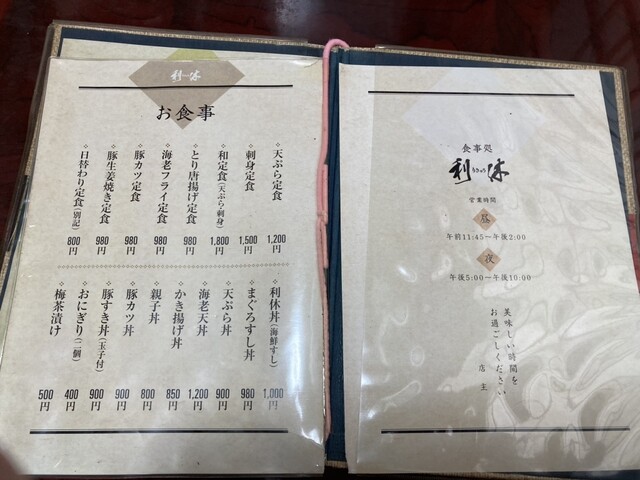 利休
お食事
◇天ぷら定食 1,200円
◇刺身定食 1,500円
◇和定食(天ぷら・刺身) 1,800円
◇とり唐揚げ定食 980円
◇海老フライ定食 980円
◇豚カツ定食 980円
◇豚生姜焼き定食 980円
◇日替わり定食(別記) 800円
◇利休丼(海鮮すし) 1,000円
◇まぐろすし丼 980円
◇天ぷら丼 900円
◇海老天丼 1,200円
◇かき揚げ丼 850円
◇親子丼 800円
◇豚カツ丼 900円
◇豚すき丼(玉子付) 900円
◇おにぎり(二個) 400円
◇梅茶漬け 500円
食事処
利休
りきゅう
営業時間
昼
午前11:45〜午後2:00
夜
午後5:00〜午後10:00
美味しい時間を
お過ごしください
店主